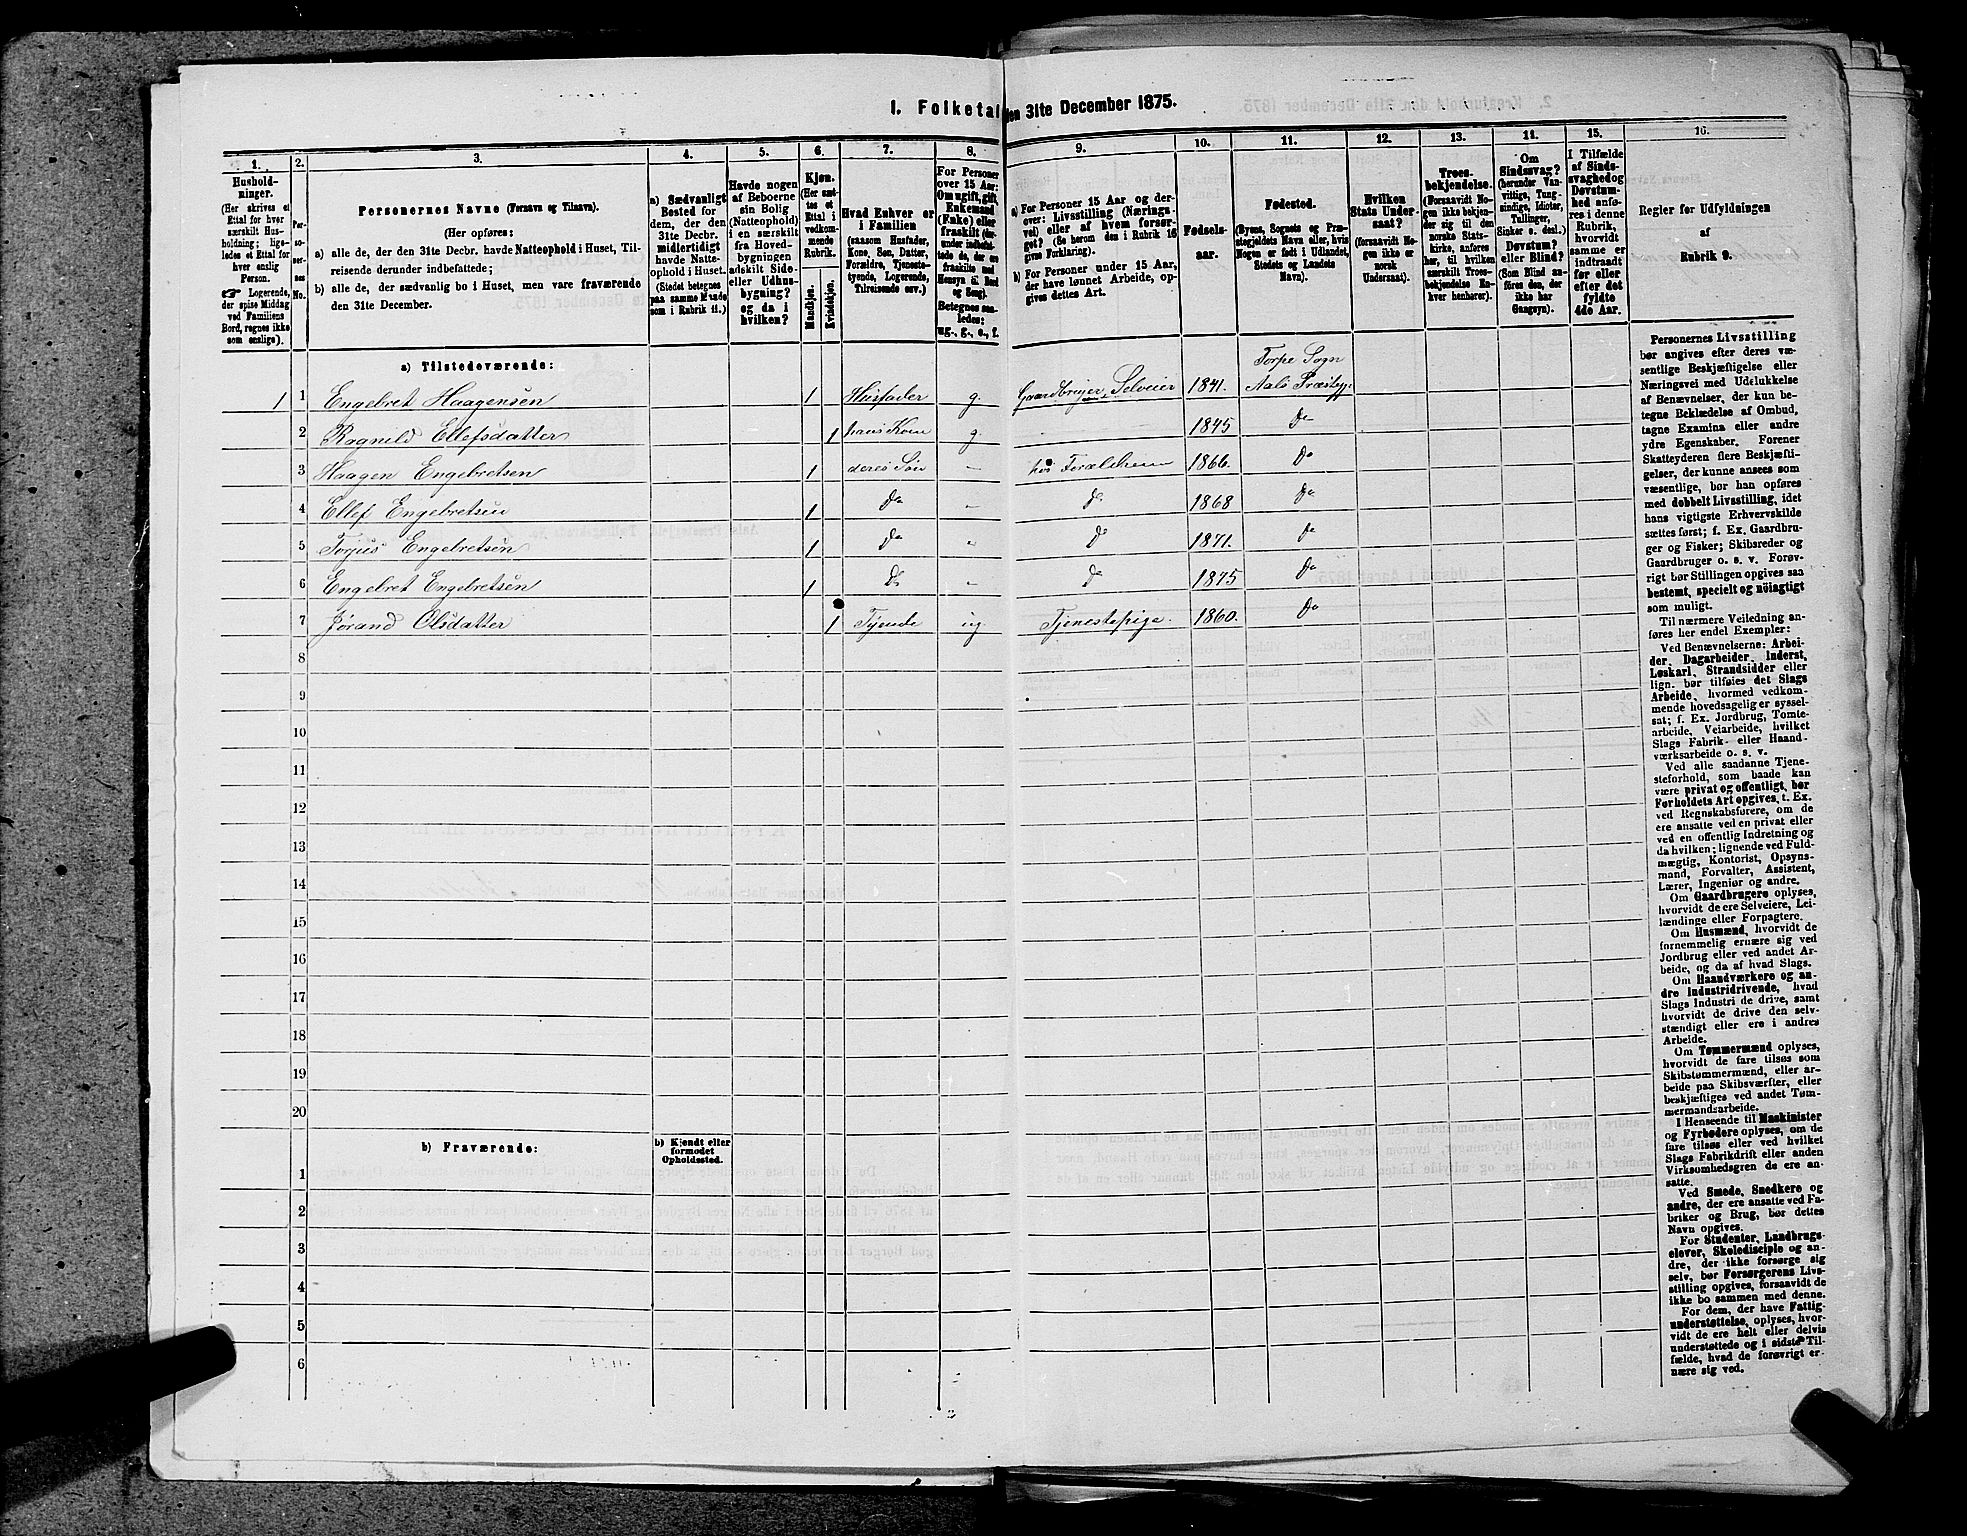 1. Folketal den 31te December 1875.
1. 2. 3. 4. 5. 6. 7. 8. 9. 10. 11. 12. 13. 14. 15. 16.
Hushold-
ninger.
(Her skrives et
Ettal for hver
særskilt Hus-
holdning; lige-
ledes et Ettal for
hver enslig
Person.
Logerende,
der spise Middag
ved Familiens
Bord, regnes ikke
som enslige).
Per-
so-
ner-
nes
No.
Personernes Navne (Fornavn og Tilnavn).
(Her opføres:
a) alle de, der den 31te Decbr. havde Natteophold i Huset, Til-
reisende derunder indbefattede;
b) alle de, der sædvanlig bo i Huset, men vare fraværende
den 31te December.
a) Sædvanligt
Bosted for
dem, der den
31te Decbr.
midlertidigt
havde Natte-
ophold i Huset.
(Stedet betegnes
paa samme Maade
som i Rubrik 11.)
Havde nogen
af Beboerne
sin Bolig
(Natteophold)
i en særskilt
fra Hoved-
bygningen
adskilt Side-
eller Udhus-
bygning?
og da i
hvilken?
Kjøn.
(Her sæt-
tes et
Ettal i
vedkom-
mende
Rubrik.
Mandkjøn.
Kvindekjøn.
Hvad Enhver er
i Familien
(saasom Husfader,
Kone, Søn, Datter,
Forældre, Tjeneste-
tyende, Logerende,
Tilreisende osv.)
For Personer
over 15 Aar:
Om ugift, gift,
Enkemand
(Enke) eller
fraskilt (der-
under indbefat-
tede de, der ere
fraskilte med
Hensyn til Bord
og Seng).
Betegnes saa-
ledes:
ug., g., e., f.
a) For Personer 15 Aar og der-
over: Livsstilling (Nærings-
vei) eller af hvem forsør-
get? (Se herom den i Rubrik 16
givne Forklaring).
b) For Personer under 15 Aar,
der have lønnet Arbeide, op-
gives dettes Art.
Fødsels-
aar.
Fødested.
(Byens, Sognets og Præ-
stegjeldets Navn eller, hvis
Nogen er født i Udlandet,
Stedets og Landets
Navn).
Hvilken
Stats Under-
saat?
(forsaavidt No-
gen ikke er
norsk
Undersaat).
Troes-
bekjendelse.
(Forsaavidt No-
gen ikke bekjen-
der sig til den
norske Stats-
kirke, anføres
her, til hvilken
særskilt Troes-
bekjendelse En-
hver henhører).
Om
Sindssvag?
(herunder Van-
vittige, Tung-
sindige, Idioter,
Tullinger,
Sinker o. desl.)
Døvstum?
eller Blind?
(Som Blind an-
føres den, der
ikke har
Gangsyn).
I Tilfælde
af Sinds-
svaghed og
Døvstum-
hed anfø-
res i denne
Rubrik,
hvorvidt
samme er
indtraadt
før eller
efter det
fyldte
4de Aar.
Regler for Udfyldningen
af
Rubrik 9.
a) Tilstedeværende:
Torpe Sogn
1 1 Engebret Haagensen 1 Husfader g. Gaardbruger, Selveier 1841. Aals Præstgj:
2 Ragnild Ellefsdatter 1 hans Kone g 1845 Do
3 Haagen Engebretsen 1 deres Søn hos Forældrene 1866. Do
4 Ellef Engebretsen 1 Do Do 1868 Do
5 Torjus Engebretsen 1 Do Do 1871. Do
6 Engebret Engebretsen 1 Do Do 1875 Do
7 Jørand Olsdatter 1 Tyende ug. Tjenestepige. 1860. Do
8
9
10
11
12
13
14
15
16
17
18
19
20
b) Fraværende:
b) Kjendt eller
formodet
Opholdssted.
1
2
3
4
5
6
Personernes Livsstilling
bør angives efter deres væ-
sentlige Beskjæftigelse eller
Næringsvei med Udelukkelse
af Benævnelser, der kun be-
tegne Beklædelse af Ombud,
tagne Examina eller andre
ydre Egenskaber. Forener
Skatteyderen flere Beskjæfti-
gelser, der kunne ansees som
væsentlige, bør han opføres
med dobbelt Livsstilling, idet
hans vigtigste Erhvervskilde
sættes først; f. Ex. Gaardbru-
ger og Fisker; Skibsreder og
Gaardbruger o. s. v. Forøv-
rigt bør Stillingen opgives saa
bestemt, specielt og nöiagtigt
som muligt.
Til nærmere Veiledning an-
føres her endel Exempler:
Ved Benævnelserne: Arbei-
der, Dagarbeider, Inderst,
Løskarl, Strandsidder eller
lign. bør tilføies det Slags
Arbeide, hvormed vedkom-
mende hovedsagelig er syssel-
sat; f. Ex. Jordbrug, Tomte-
arbeide, Veiarbeide, hvilket
Slags Fabrik- eller Haand-
værksarbeide o. s. v.
Ved alle saadanne Tjene-
steforhold, som baade kan
være privat og offentligt, bør
Førholdets Art opgives, t. Ex.
ved Regnskabsførere, om de
ere ansatte ved en privat eller
ved en offentlig Indretning og
da hvilken; lignende ved Fuld-
mægtig, Kontorist, Opsyns-
mand, Forvalter, Assistent,
Lærer, Ingeniør og andre.
Om Gaardbrugere oplyses,
hvorvidt de ere Selveiere, Lei-
lændinge eller Forpagtere.
Om Husmænd, hvorvidt de
fornemmelig ernære sig ved
Jordbrug eller ved andet Ar-
beide, og da af hvad Slags.
Om Haandværkere og an-
dre Industridrivende, hvad
Slags Industri de drive, samt
hvorvidt de drive den selv-
stændigt eller ere i andres
Arbeide.
Om Tømmermænd oplyses,
hvorvidt de fare tilsøs som
Skibstømmermænd, eller ar-
beide paa Skibsværfter, eller
beskjæftiges ved andet Tøm-
mermandsarbeide.
I Henseende til Maskinister
og Fyrbødere oplyses, om de
fare tilsøs eller ved hvilket
Slags Fabrikdrift eller anden
Virksomhedsgren de ere an-
satte.
Ved Smede, Snedkere og
andre, der ere ansatte ved Fa-
briker og Brug, bør dettes
Navn opgives.
For Studenter, Landbrugs-
elever, Skoledisciple og an-
dre, der ikke forsørge sig
selv, bør Forsørgerens Livs-
stilling opgives, forsaavidt de
ikke bo sammen med denne.
For dem, der have Fattig-
understøttelse, oplyses, hvor-
vidt de ere helt eller delvis
understøttede og i sidste Til-
fælde, hvad de forøvrigt er-
nære sig ved.